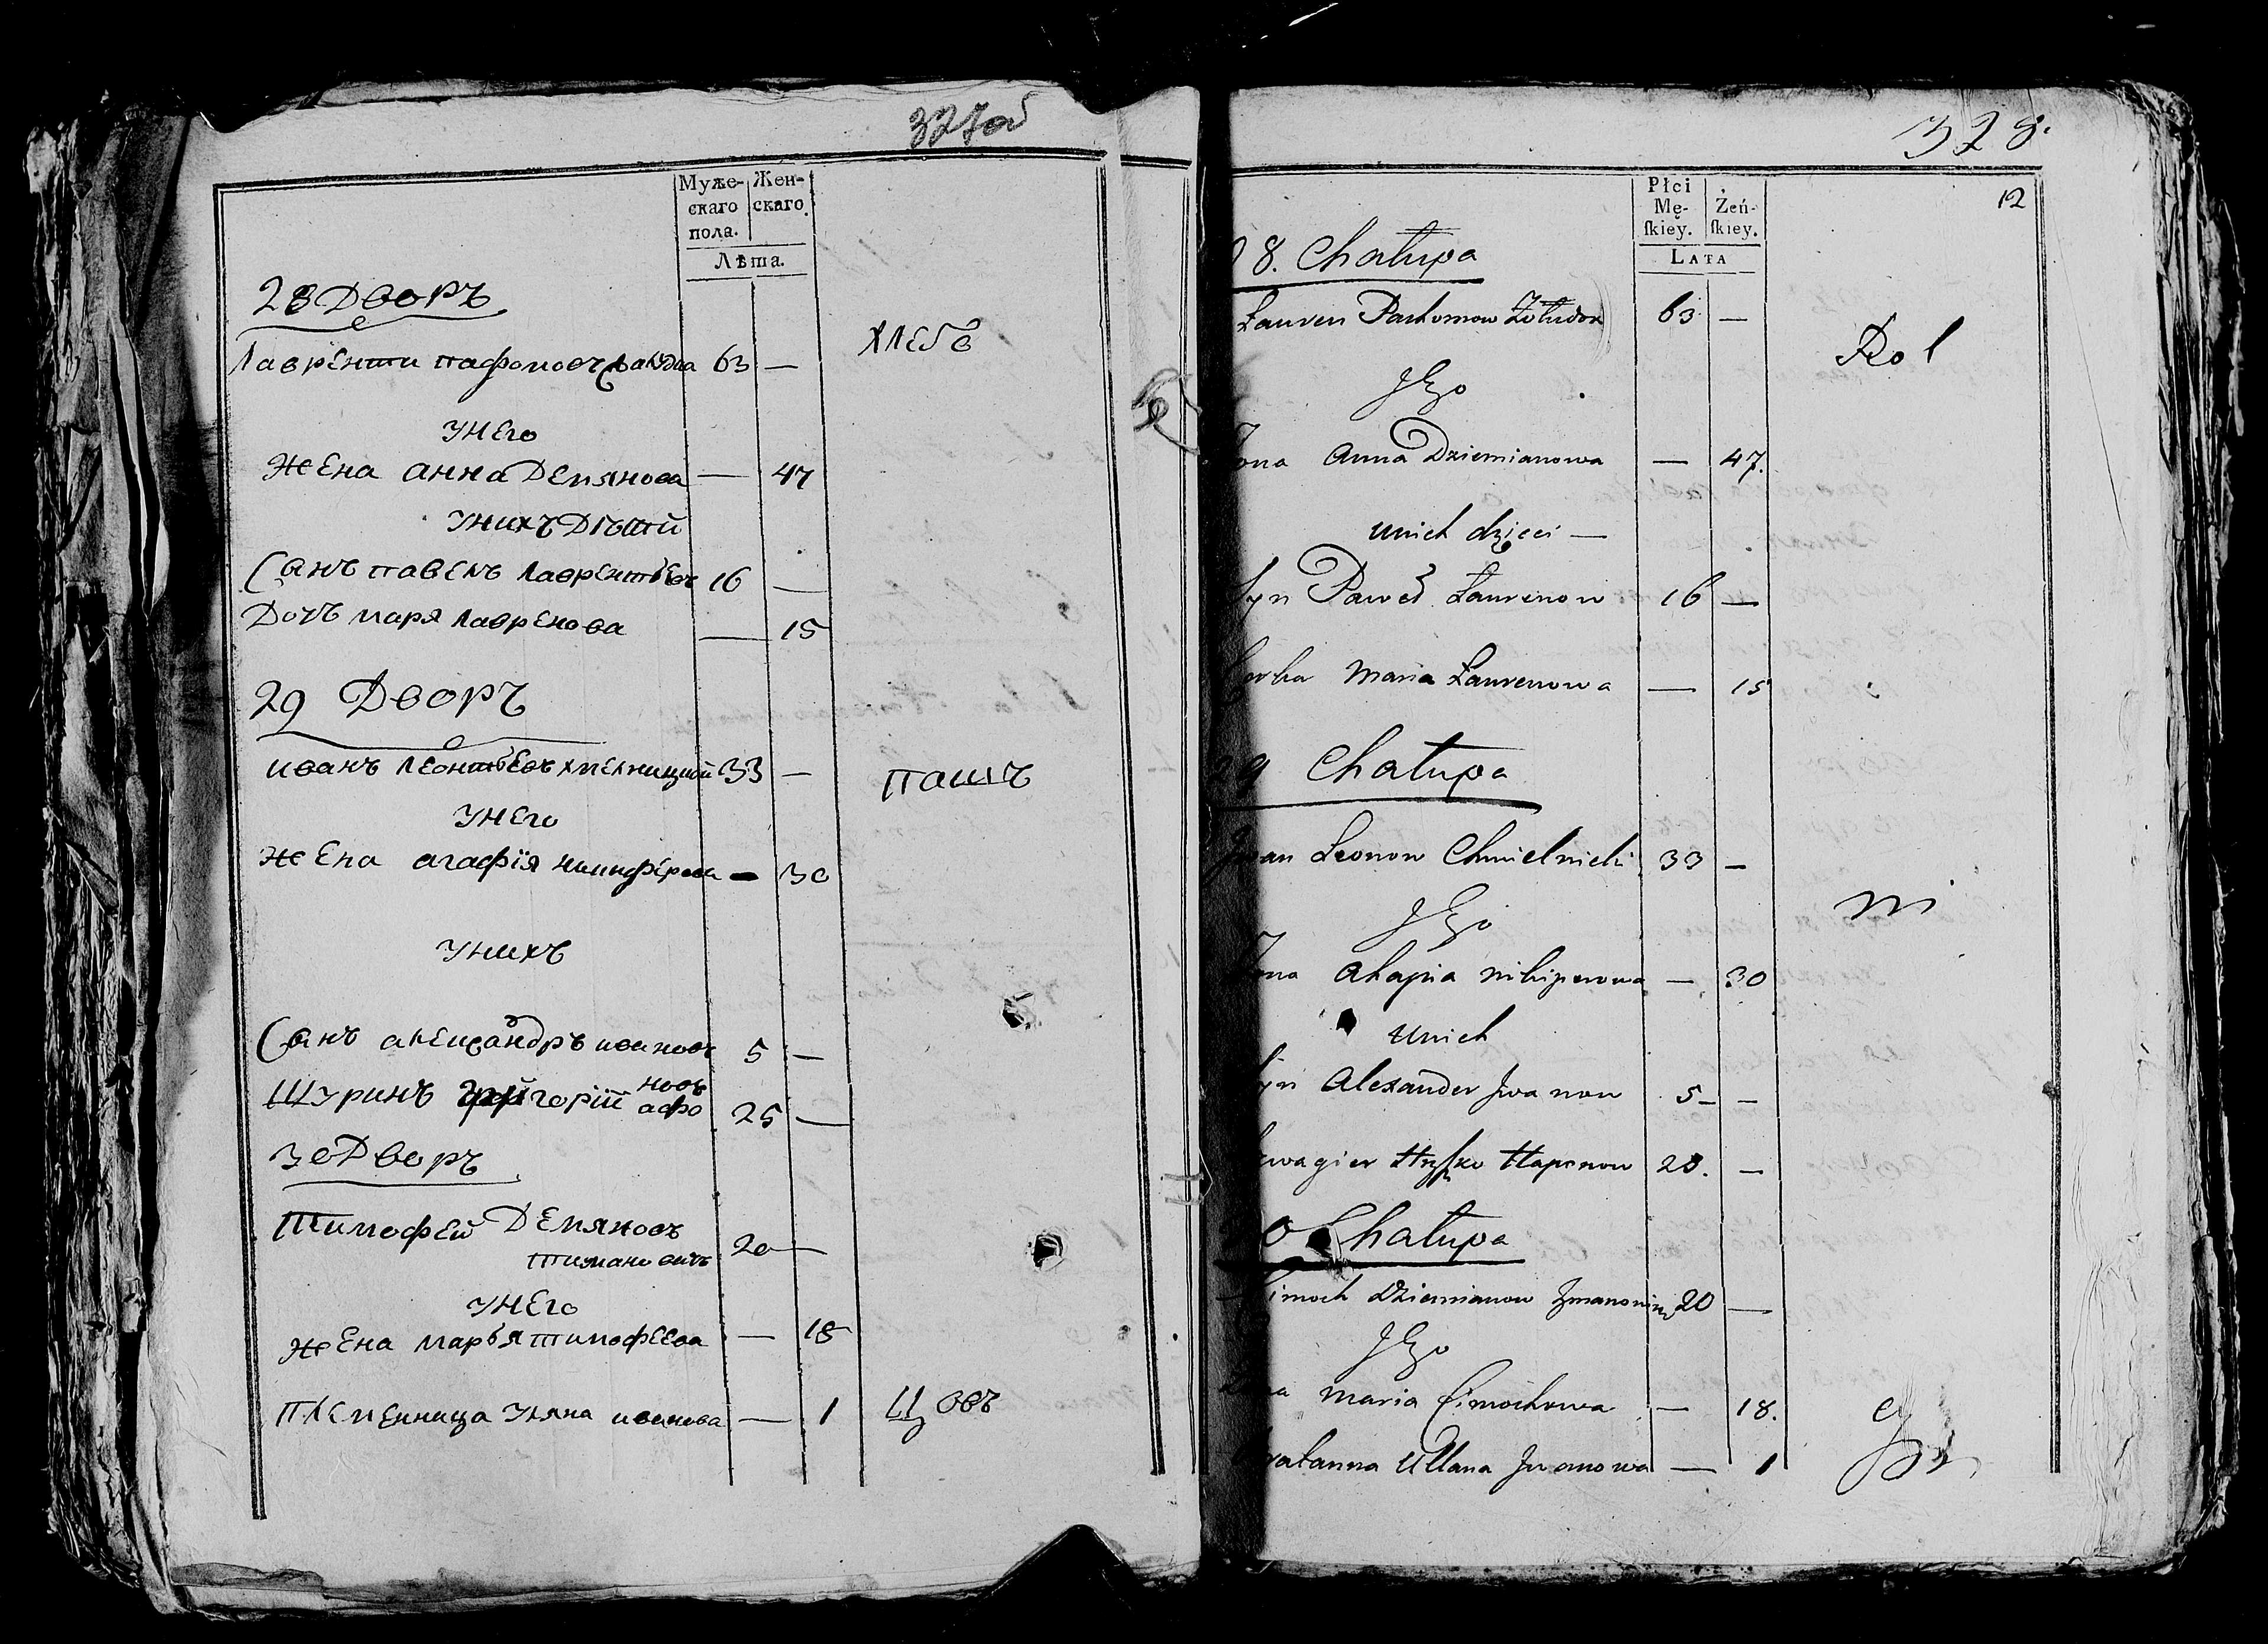 327об
Муже- Жен-
скаго скаго.
пола.
Лѣта.
28 Дворъ
Лаврентий 63 —
хлебо
унего
жена анна Демянова — 47
унихъ Дѣтей
Сынъ павелъ Лаврентьевъ 16 —
Дочь маря Лавренова — 15
29 Дворъ
иванъ леонтьевъ хмелницкий 33 —
пашъ
унего
жена агафїя никифорова — 30
унихъ
Сынъ александръ ивановъ 5 —
Шуринъ григорїй афо новъ 25 —
30 Дворъ
тимофей Демяновъ
20 —
унего
жена марья тимофеева — 18
племенница уляна иванова — 1
цовъ
328.
12
Płci
Mę- Żeń-
ſkiey. ſkiey.
Lata
8. Chałupa
Ławren Parkomow 63 —
Rol
Jego
Żona Anna Dziemianowa — 47.
Unich dzieci —
Syn Paweł Ławrenow 16 —
Corka Maria Ławrenowa — 15
9 Chałupa
Jwan Leonow Chmielnicki 33 —
ni
Jego
Żona Ahapia Nikiperowa — 30
Unich
Syn Alexander Jwanow 5 — —
Szwagier Hryſzko Haponow 25. —
0 Chałupa
Cimoch Dziemianow 20 —
Jego
Żona Maria Cimochowa — 18.
Ullana Jwanowa — 1
cy